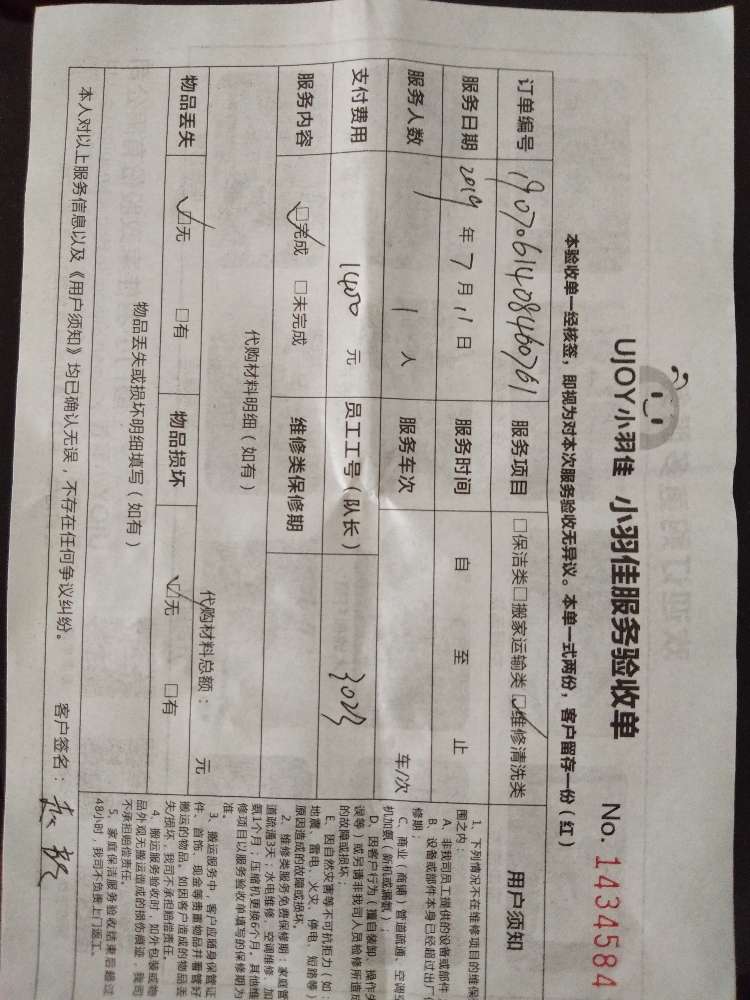 UJOY小羽佳 小羽佳服务验收单 No. 1434584
本验收单一经核签，即视为对本次服务验收无异议。本单一式两份，客户留存一份（红）
订单编号 1907061408460761 服务项目 □保洁类□搬家运输类☑维修清洗类
服务日期 2019年7月11日 服务时间 自 至 止
服务人数 1 人 服务车次 车/次
支付费用 1400 元 员工工号（队长） 3023
服务内容 ☑完成 □未完成 维修类保修期
代购材料明细（如有）
代购材料总额： 元
物品丢失 ☑无 □有 物品损坏 ☑无 □有
物品丢失或损坏明细填写（如有）
本人对以上服务信息以及《用户须知》均已确认无误，不存在任何争议纠纷。 客户签名：
用户须知
1、下列情况不在维修项目的维保
围之内：
A、非我司员工提供的设备或部件
B、设备或部件本身已经超过出厂
修期；
C、商业（商铺）管道疏通，空调
机加氨（新机或漏氟）；
D、因客户行为（擅自装卸、操作失
误等）或另请非我司人员检修所造成
的故障或损坏；
E、因自然灾害等不可抗拒力（如：
地震、雷电、火灾、停电、短路等）
原因造成的故障或损坏。
2、维修类服务免费保修期：家庭管
道疏通3天，水电维修、空调维修、加
氨1个月，压缩机更换6个月。其他维
修项目以服务验收单填写的保修期为
准。
3、搬运服务中，客户应随身保管证
件、首饰、现金等贵重物品并看管好
搬运的物品，如因客户造成的物品丢
失损坏，我司不承担赔偿责任。
4、搬运服务验收时，如外包装或物
品外观无搬运造成的损伤痕迹，我司
不承担赔偿责任。
5、家庭保洁服务验收结束后超过
48小时，我司不负责上门返工。